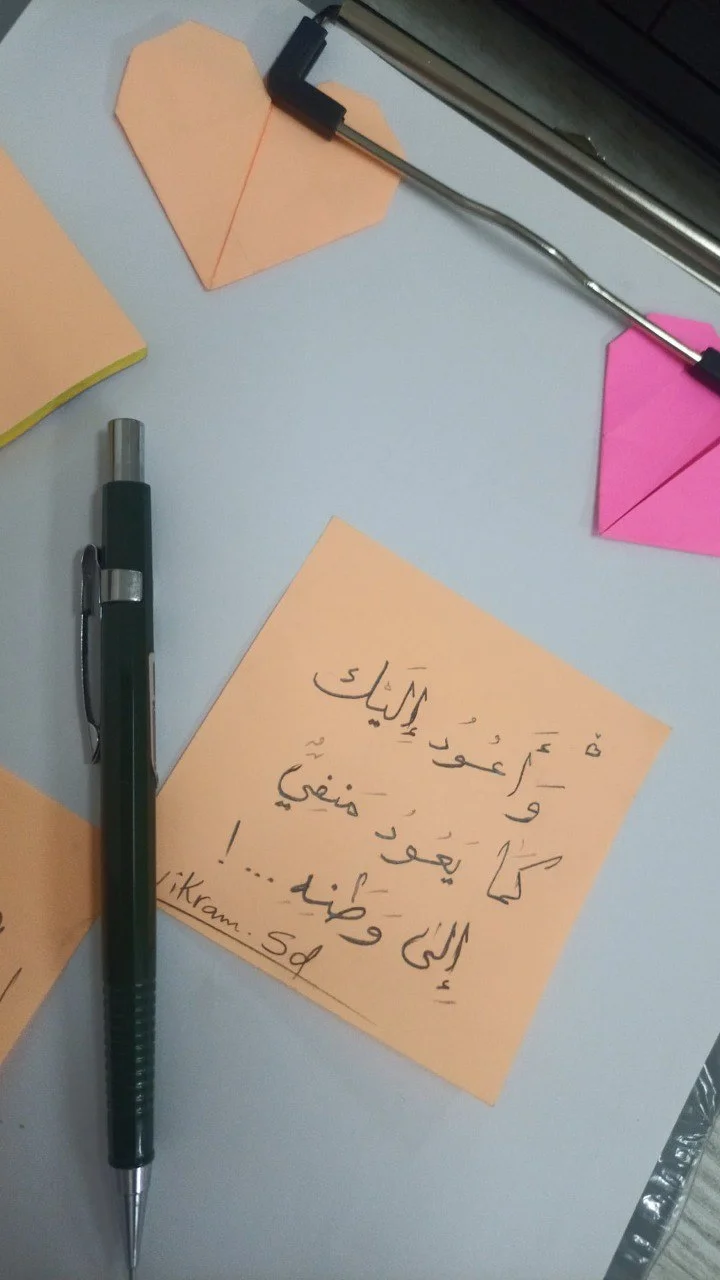 وَأَعُودُ إِلَيْكَ
كَمَا يَعُودُ مَنفِيٌّ
إِلَىٰ وَطَنِهِ ...!
iKram. Sd